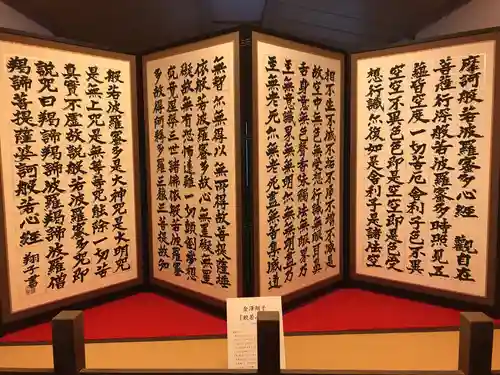 摩訶般若波羅蜜多心經 觀自在
菩薩行深般若波羅蜜多時照見五
蘊皆空度一切苦厄舍利子色不異
空空不異色色即是空空即是色受
想行識亦復如是舍利子是諸法空
相不生不滅不垢不淨不增不減是
故空中無色無受想行識無眼耳鼻
舌身意無色聲香味觸法無眼界乃
至無意識界無無明亦無無明盡乃
至無老死亦無老死盡無苦集滅道
無智亦無得以無所得故菩提薩埵
依般若波羅蜜多故心無罣礙無罣
礙故無有恐怖遠離一切顛倒夢想
究竟涅槃三世諸佛依般若波羅蜜
多故得阿耨多羅三藐三菩提故知
般若波羅蜜多是大神咒是大明咒
是無上咒是無等等咒能除一切苦
真實不虛故説般若波羅蜜多咒即
説咒曰羯諦羯諦波羅羯諦波羅僧
羯諦菩提薩婆訶般若心經 翔子書
金澤翔子
「般若